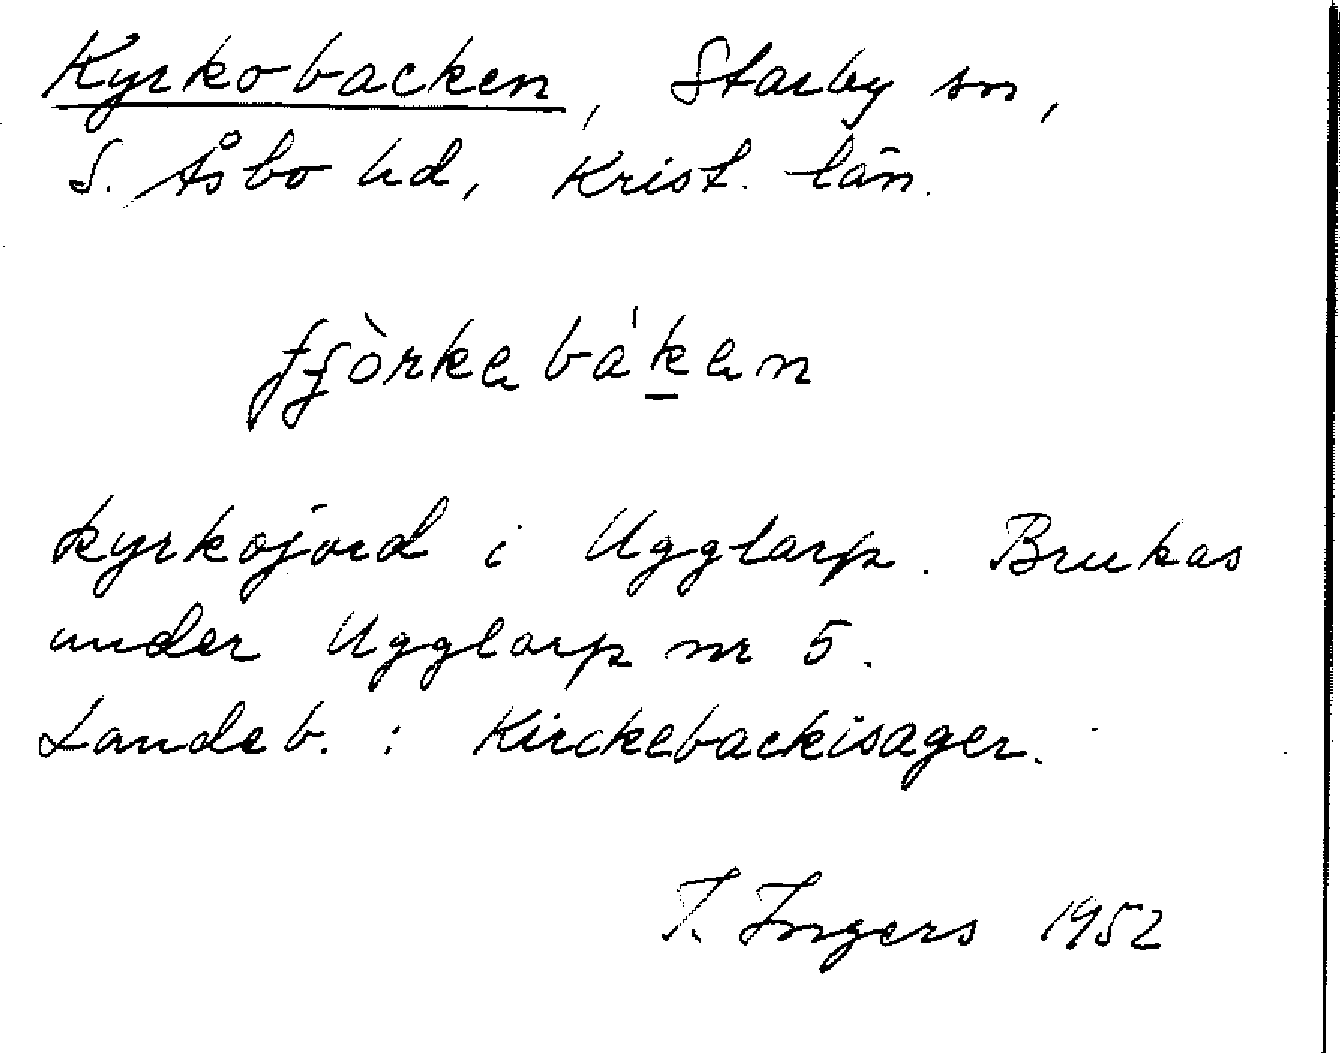 Kyrkobacken, Starby sn,
S. Åsbo hd, Krist. län.
fʃö̀rkəbákən
kyrkojord i Ugglarp. Brukas
under Ugglarp nr 5.
Landeb. : Kirckebackisager.
I. Ingers 1952